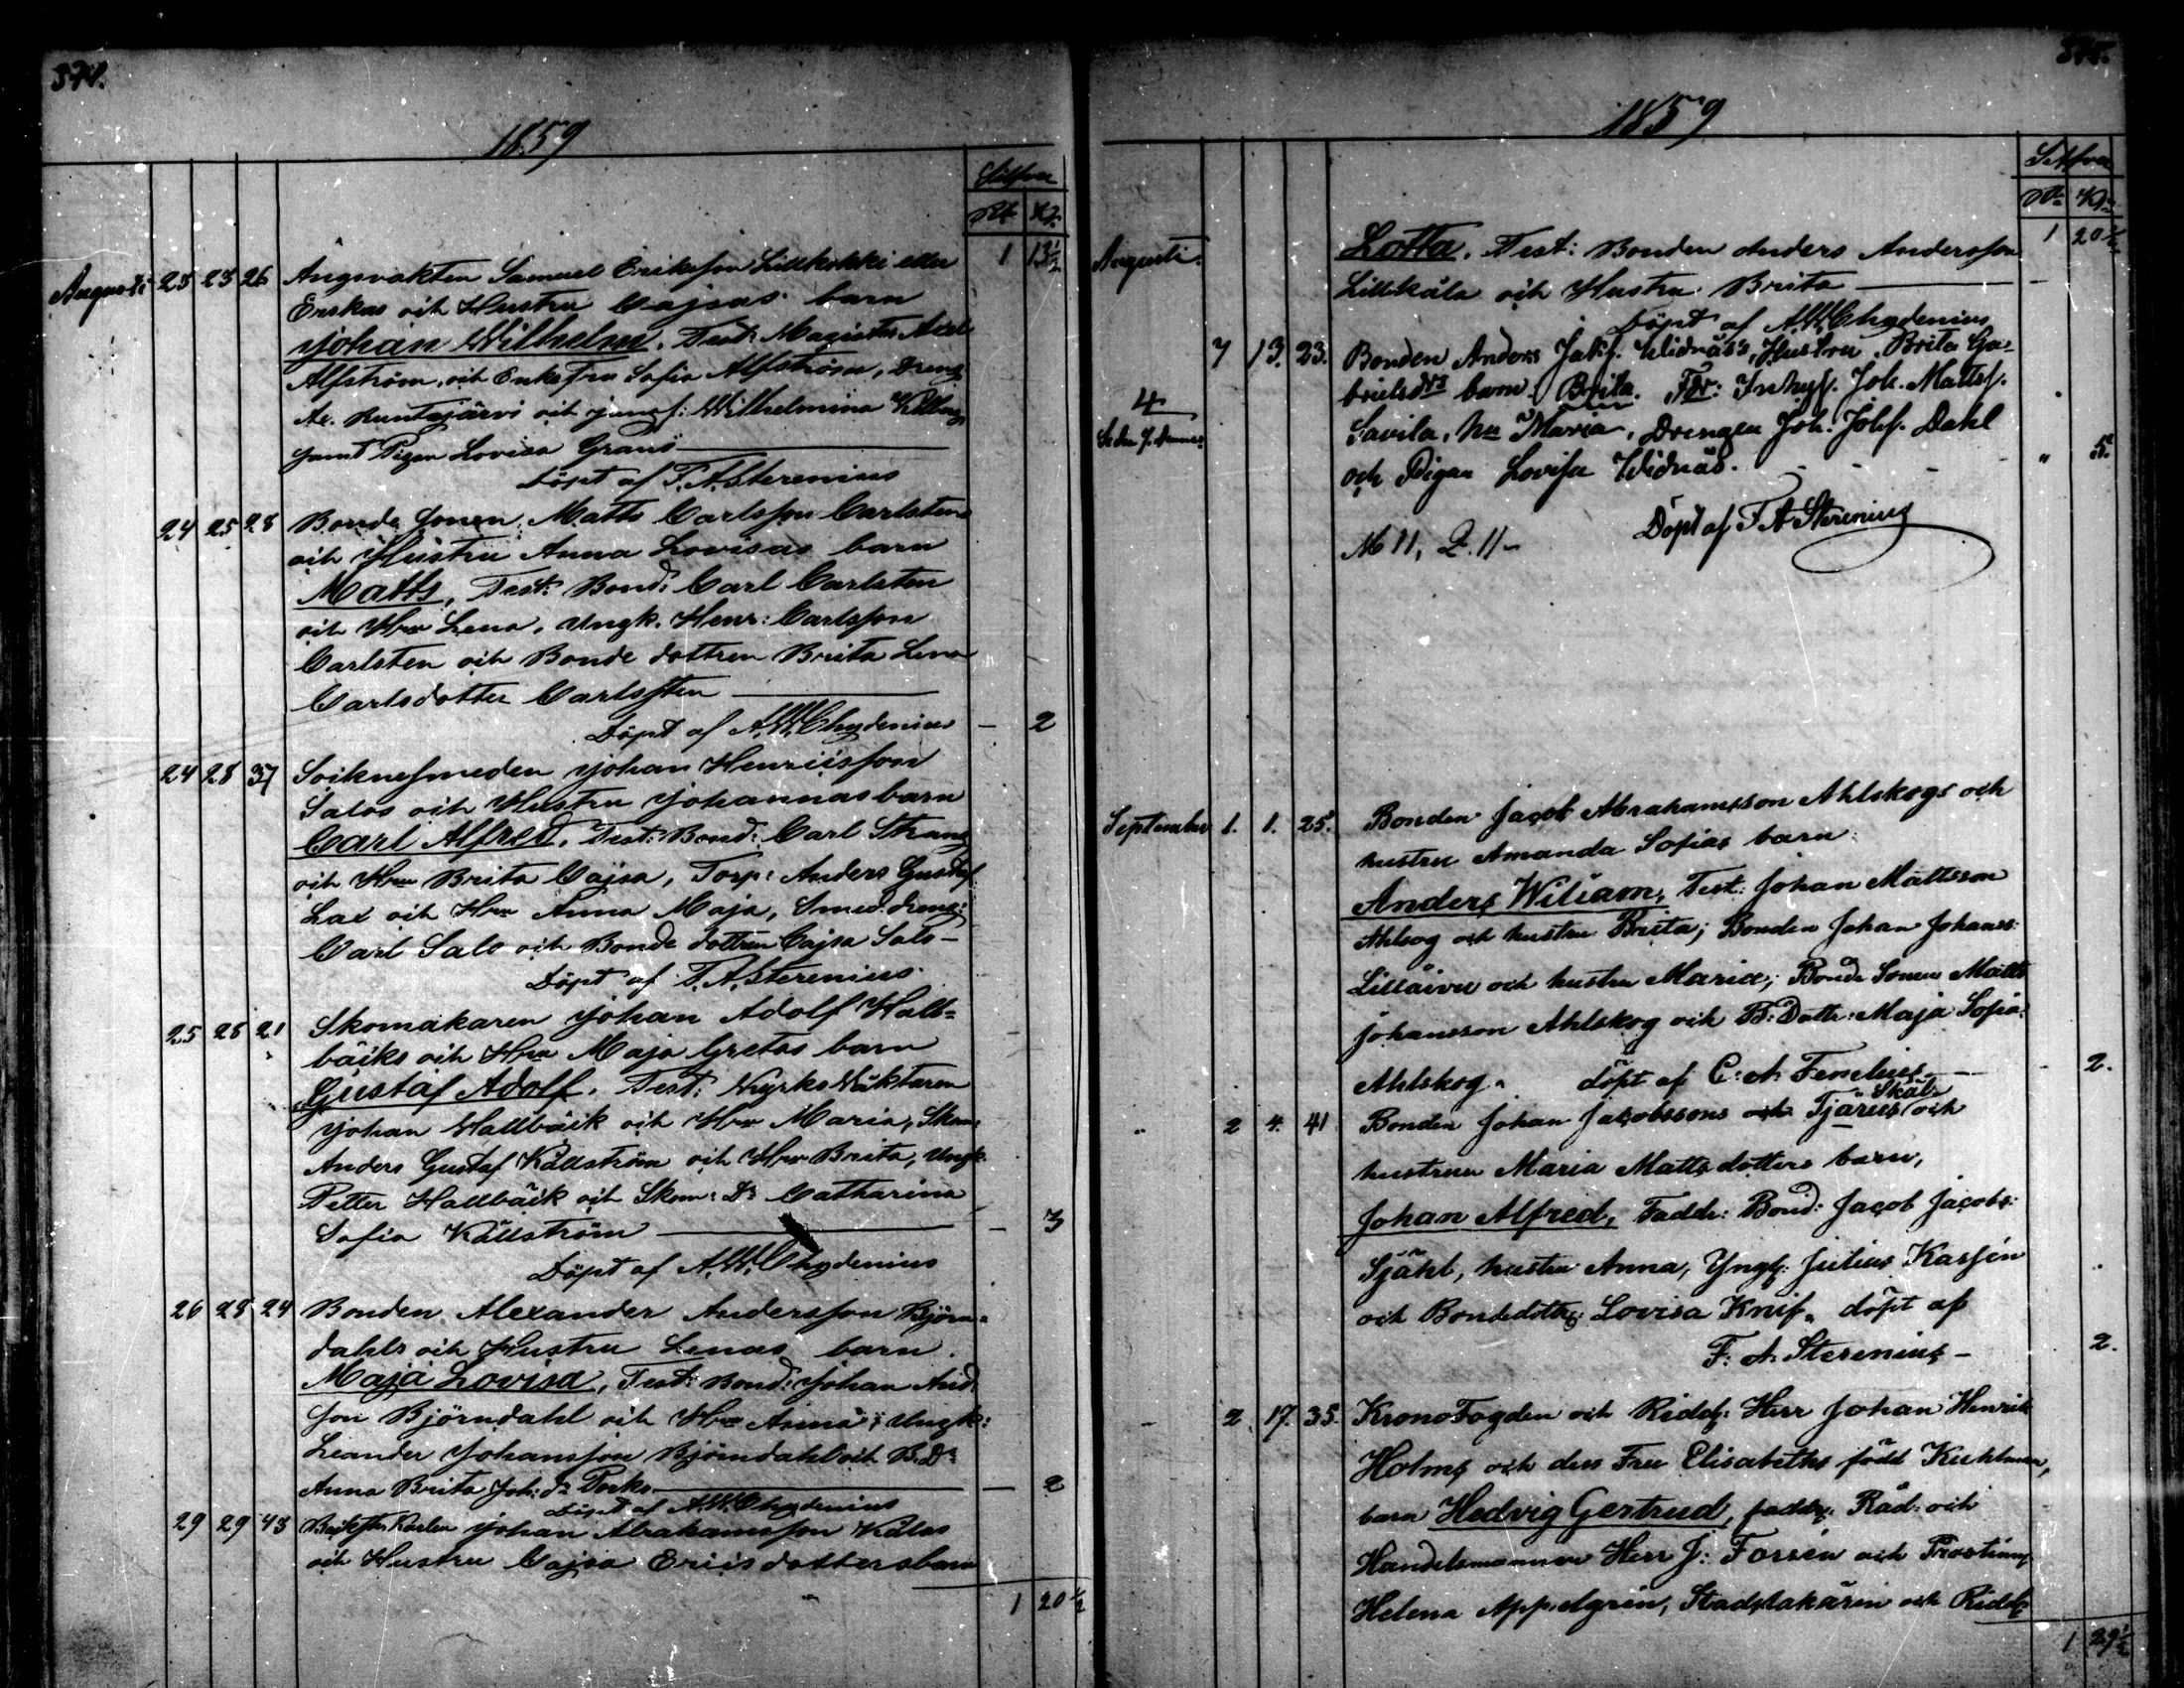 374.
1859
Silfver
Rb. Kp.
1 13½
Augusti 23 23 26 Angsvakten Samuel Eriksson Lillkokki eller
Erskas och Hustru Cajsas barn
Johan Wilhelm. Test: Magister Axel
Alfström, och Enkefru Sofia Alfström, Dreng
Ax. Runtujärvi och jungf: Wilhelmina
samt Pigan Lovisa Granö
Döpt af F. A. Sterenius
24 25 28 Bonde Sonen Matts Carlsson Carlstens
och Hustru Anna Lovisas barn
Matts, Test: Bond: Carl Carlsten
och Hru Lena, Ungk. Henr: Carlsson
Carlsten och Bonde dottren Brita Lena
Carlsdotter Carlsten
Döpt af A. W. Chydenius — 2
24 28 37 Socknesmeden Johan Henricsson
Salos och Hustru Johannas barn
Carl Alfred. Test: Bond: Carl Strang
och Hru Brita Cajsa, Torp: Anders Gustaf
Lax och Hru Anna Maja, Smed dreng:
Carl Salo och Bonde dottren Cajsa Salo —
Döpt af F. A. Sterenius.
25 28 21 Skomakaren Johan Adolf Hall=
bäcks och Hru Maja Gretas barn
Gustaf Adolf. Test: Kyrko Wäktaren
Johan Hallbäck och Hru Maria, Skom:
Anders Gustaf Källström och Hru Brita, Ungk.
Petter Hallbäck och Skom: Dr Catharina
Sofia Källström — 3
Döpt af A. W. Chydenius
26 28 24 Bonden Alexander Andersson Björn=
dahls och Hustru Lenas barn.
Maja Lovisa, Test: Bond: Johan And.
son Björndahl och Hru Anna; Ungk:
Leander Johansson Björndahl och B.D:
Anna Brita Joh: dr Forks — 2
Döpt af A. W. Chydenius
29 29 43 Johan Abrahamsson Kålas
och Hustru Cajsa Ericsdotters barn
1 20½
375.
1859
Silfver
Rb. Kp.
1 20½
Augusti. Lotta. Test: Bonden Anders Andersson
Lillkåla och Hustru Brita —
Döpt af A. W. Chydenius
7 13. 23. Bonden Anders Jakf. Widnäs's, Hustru Brita Ga-
brielsdrs barn Brita. Fdr: Inhysf. Joh. Mattsf.
4
Savila, hu Maria, Drengen Joh. Johf. Dahl
och Pigan Lovisa Widnäs. " 5.
M 11, Q. 11- Döpt af F A Sterenius
September 1. 1. 25. Bonden Jacob Abrahamsson Ahlskogs och
hustru Amanda Sofias barn
Anders Wiliam, Test: Johan Mattsson
Ahlsog och hustru Brita; Bonden Johan Johanss:
och hustru Maria; Bonde Sonen Matts
Johansson Ahlskog och B: Dottr: Maja Sofia
Ahlskog. döpt af C. A. Fenelius — 2.
" 2 4. 41 Bonden Johan Jacobssons och Tjärus Skäl och
hustrun Maria Mattsdotters barn,
Johan Alfred, Faddr: Bond: Jacob Jacobs:
Sjähl, hustru Anna, Yngl: Julius Kassjén
och Bondedottr: Lovisa Knif. döpt af
F: A. Sterenius — 2.
- 2. 17. 35. KronoFogden och Ridd: Herr Johan Henrik
Holms och dess Fru Elisabeths född Kuhlman,
barn Hedvig Gertrud, faddr: Råd. och
Handelsmannen Herr J: Forsén och Prostinn:
Helena Appelgrén, Stadsläkaren och Ridd:
1 29½